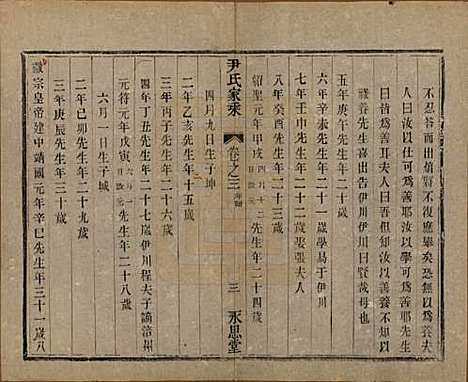 不忍荅而出暫不復應舉矣恐無以爲養夫
人曰汝以可仕爲善耶汝以可學爲善耶先生
曰皆可爲善耳夫人曰吾知汝以爲善養不知汝以
祿養先生喜出告伊川伊川曰賢哉母也
五年庚午先生年二十歲
六年辛未先生年二十一歲學易于伊川
七年壬申先生年二十二歲娶張夫人
八年癸酉先生年二十三歲
紹聖元年甲戌四月十二日改元先生年二十四歲
尹氏家乘
卷之三
三
永思堂
四月九日生子坤
二年乙亥先生年二十五歲
三年丙子先生年二十六歲
四年丁丑先生年二十七歲伊川程夫子謫涪州
元符元年戊寅六月一日改元先生年二十八歲
六月一日生子城
二年己卯先生年二十九歲
三年庚辰先生年三十歲
徽宗皇帝建中靖國元年辛巳先生年三十一歲八